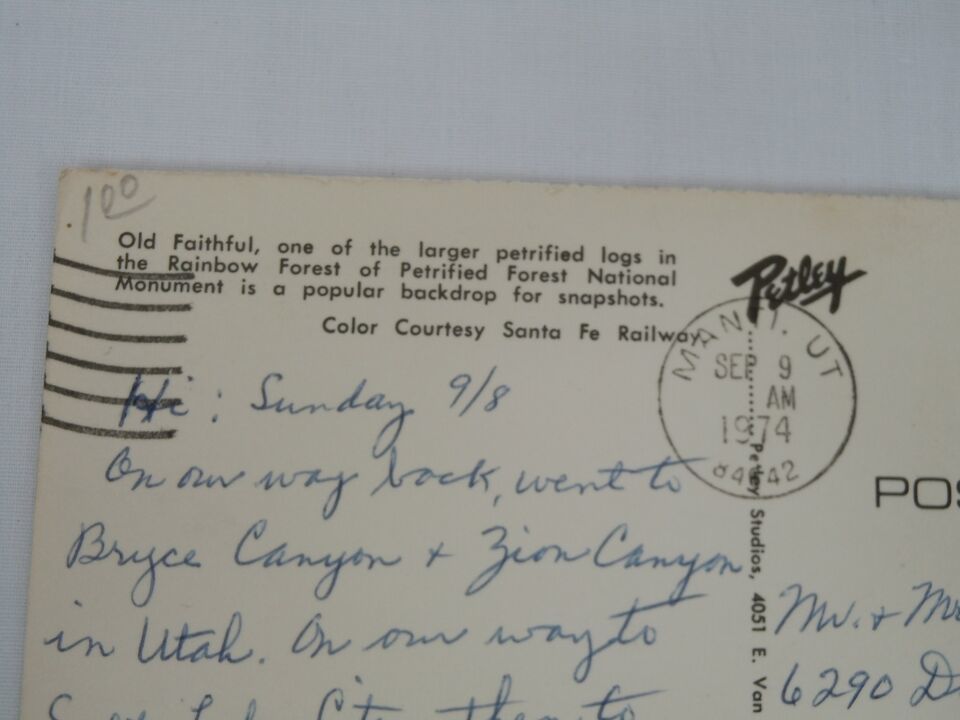 1 00
Old Faithful, one of the larger petrified logs in
the Rainbow Forest of Petrified Forest National
Monument is a popular backdrop for snapshots.
Color Courtesy Santa Fe Railway
Petley
MANTI, UT
SEP 9
AM
1974
84642
Petley Studios, 4051 E. Van
Hi: Sunday 9/8
On our way back, went to
Bryce Canyon + Zion Canyon
in Utah. On our way to
City then to
POS
Mr. + Mr
6290 D